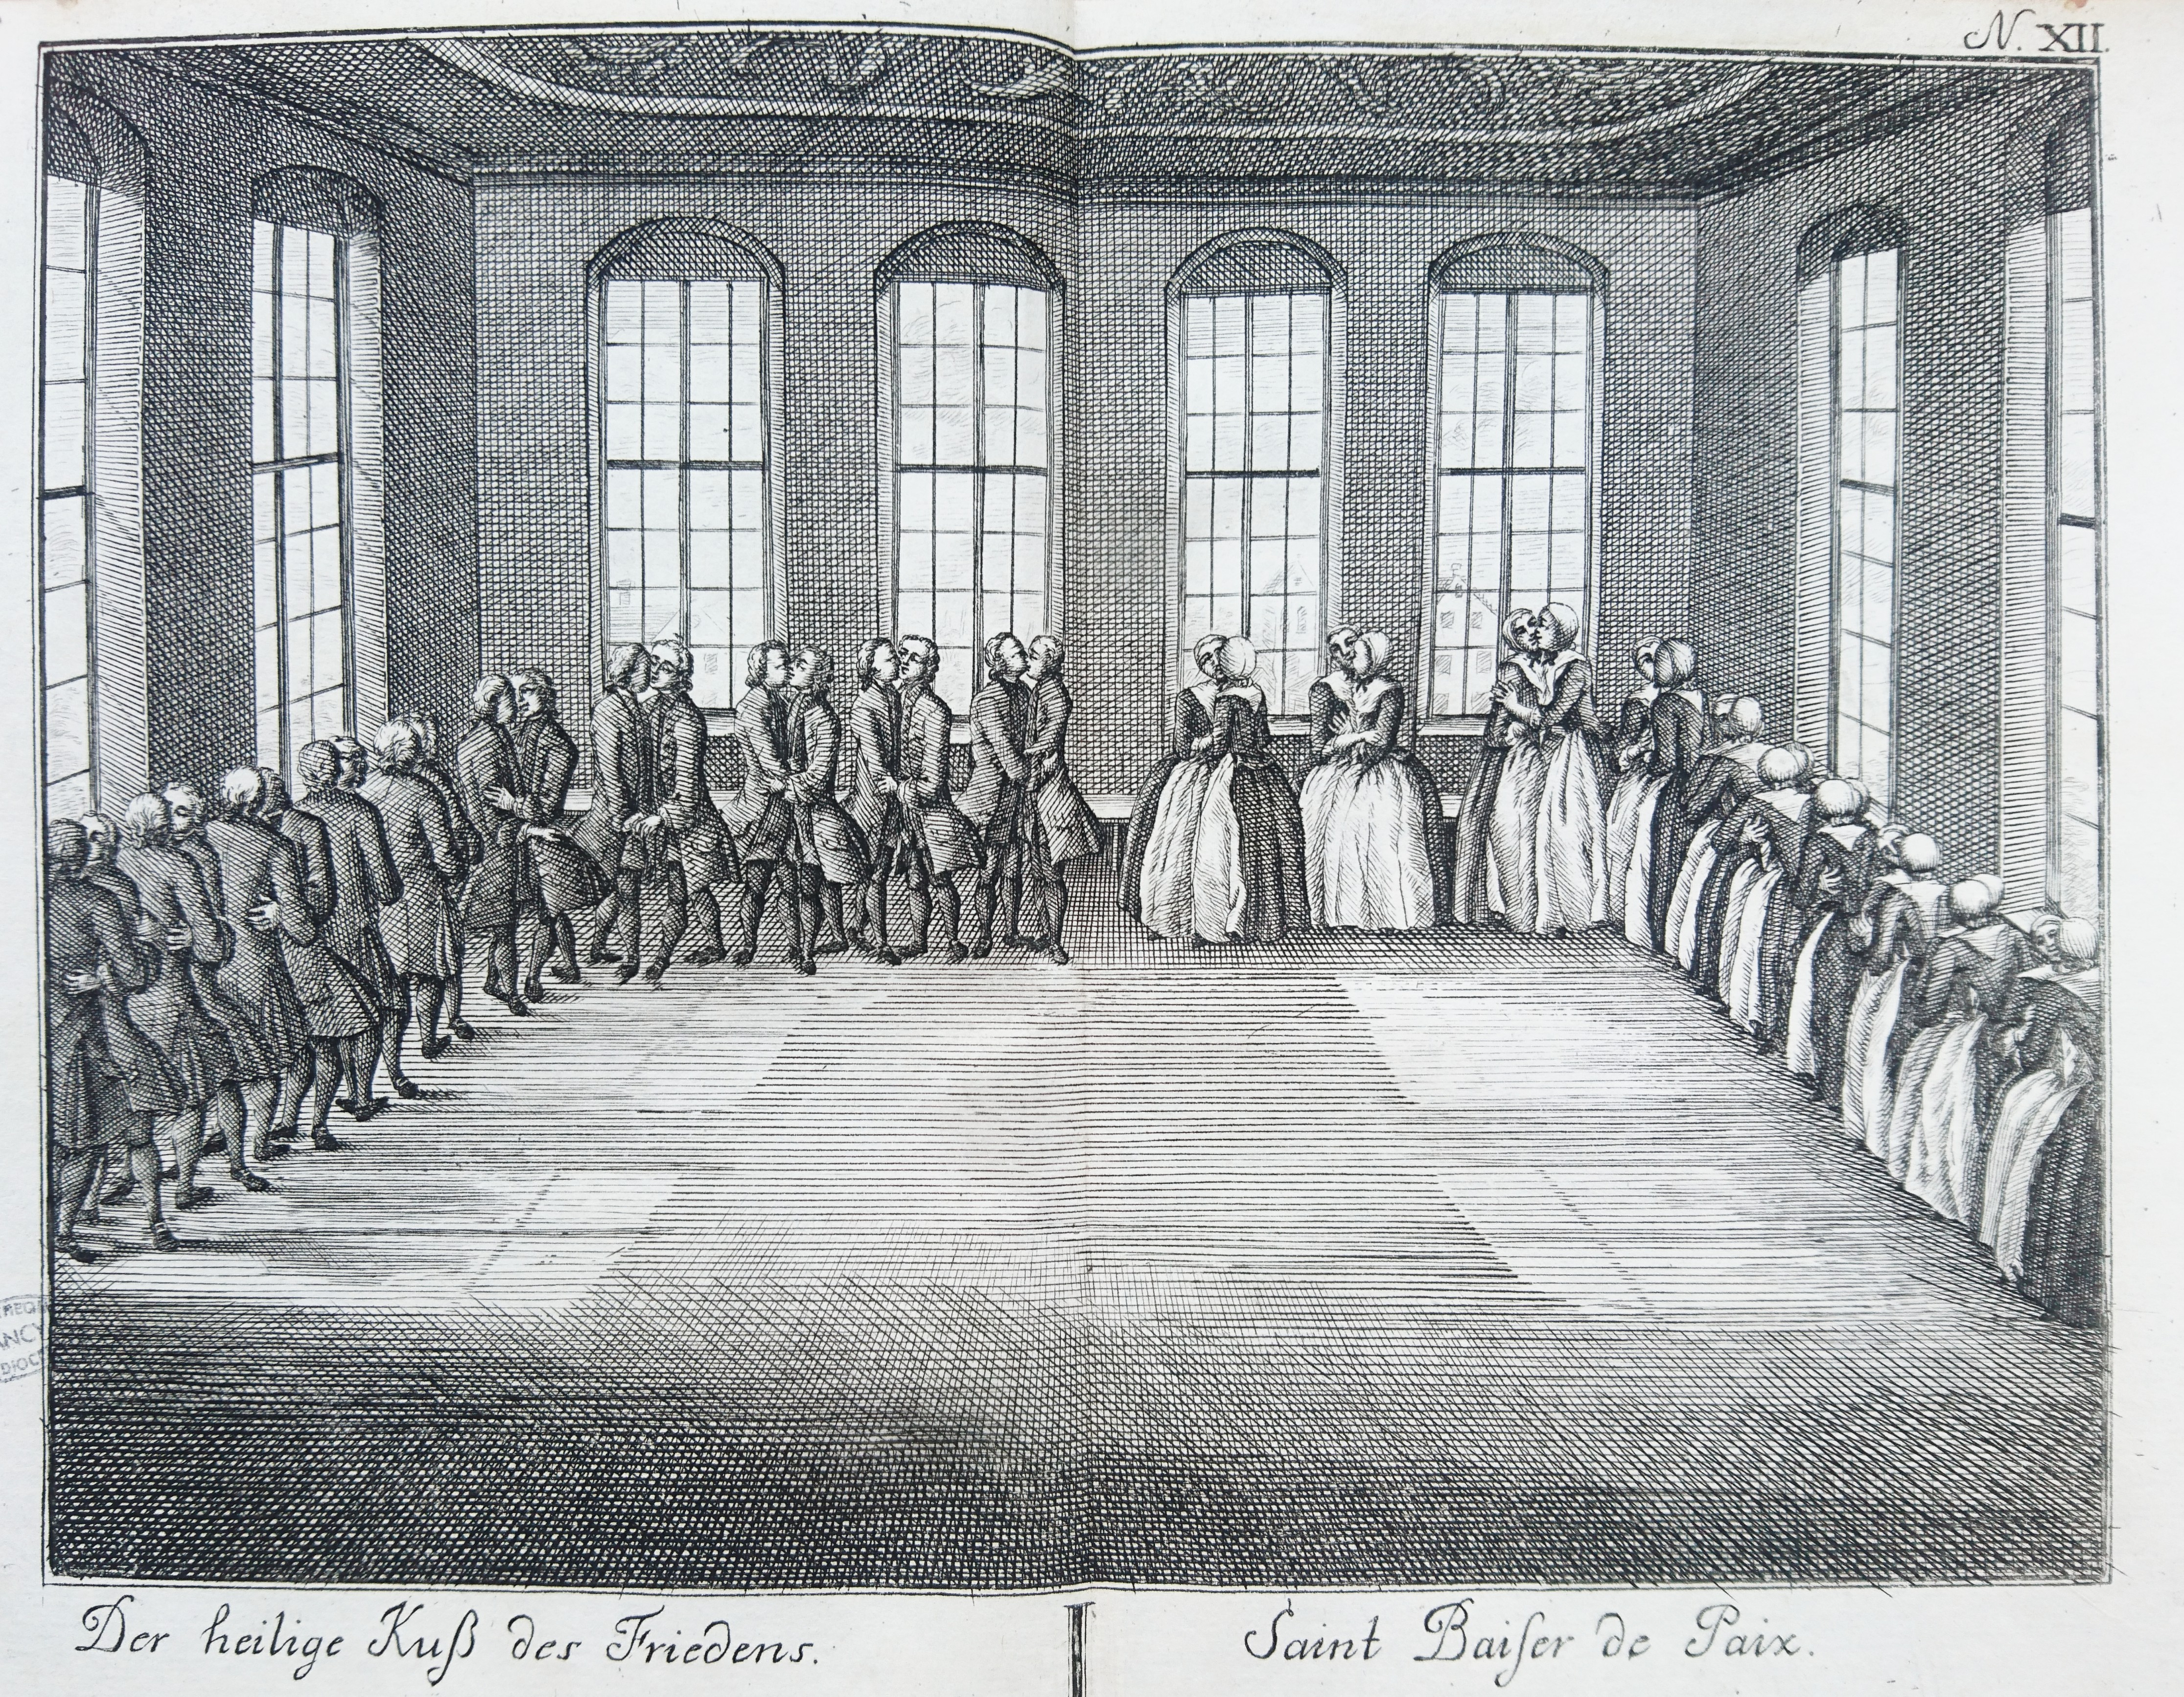 N. XII.
ANCY
Der heilige Kuß des Friedens.
Saint Baiſer de Paix.